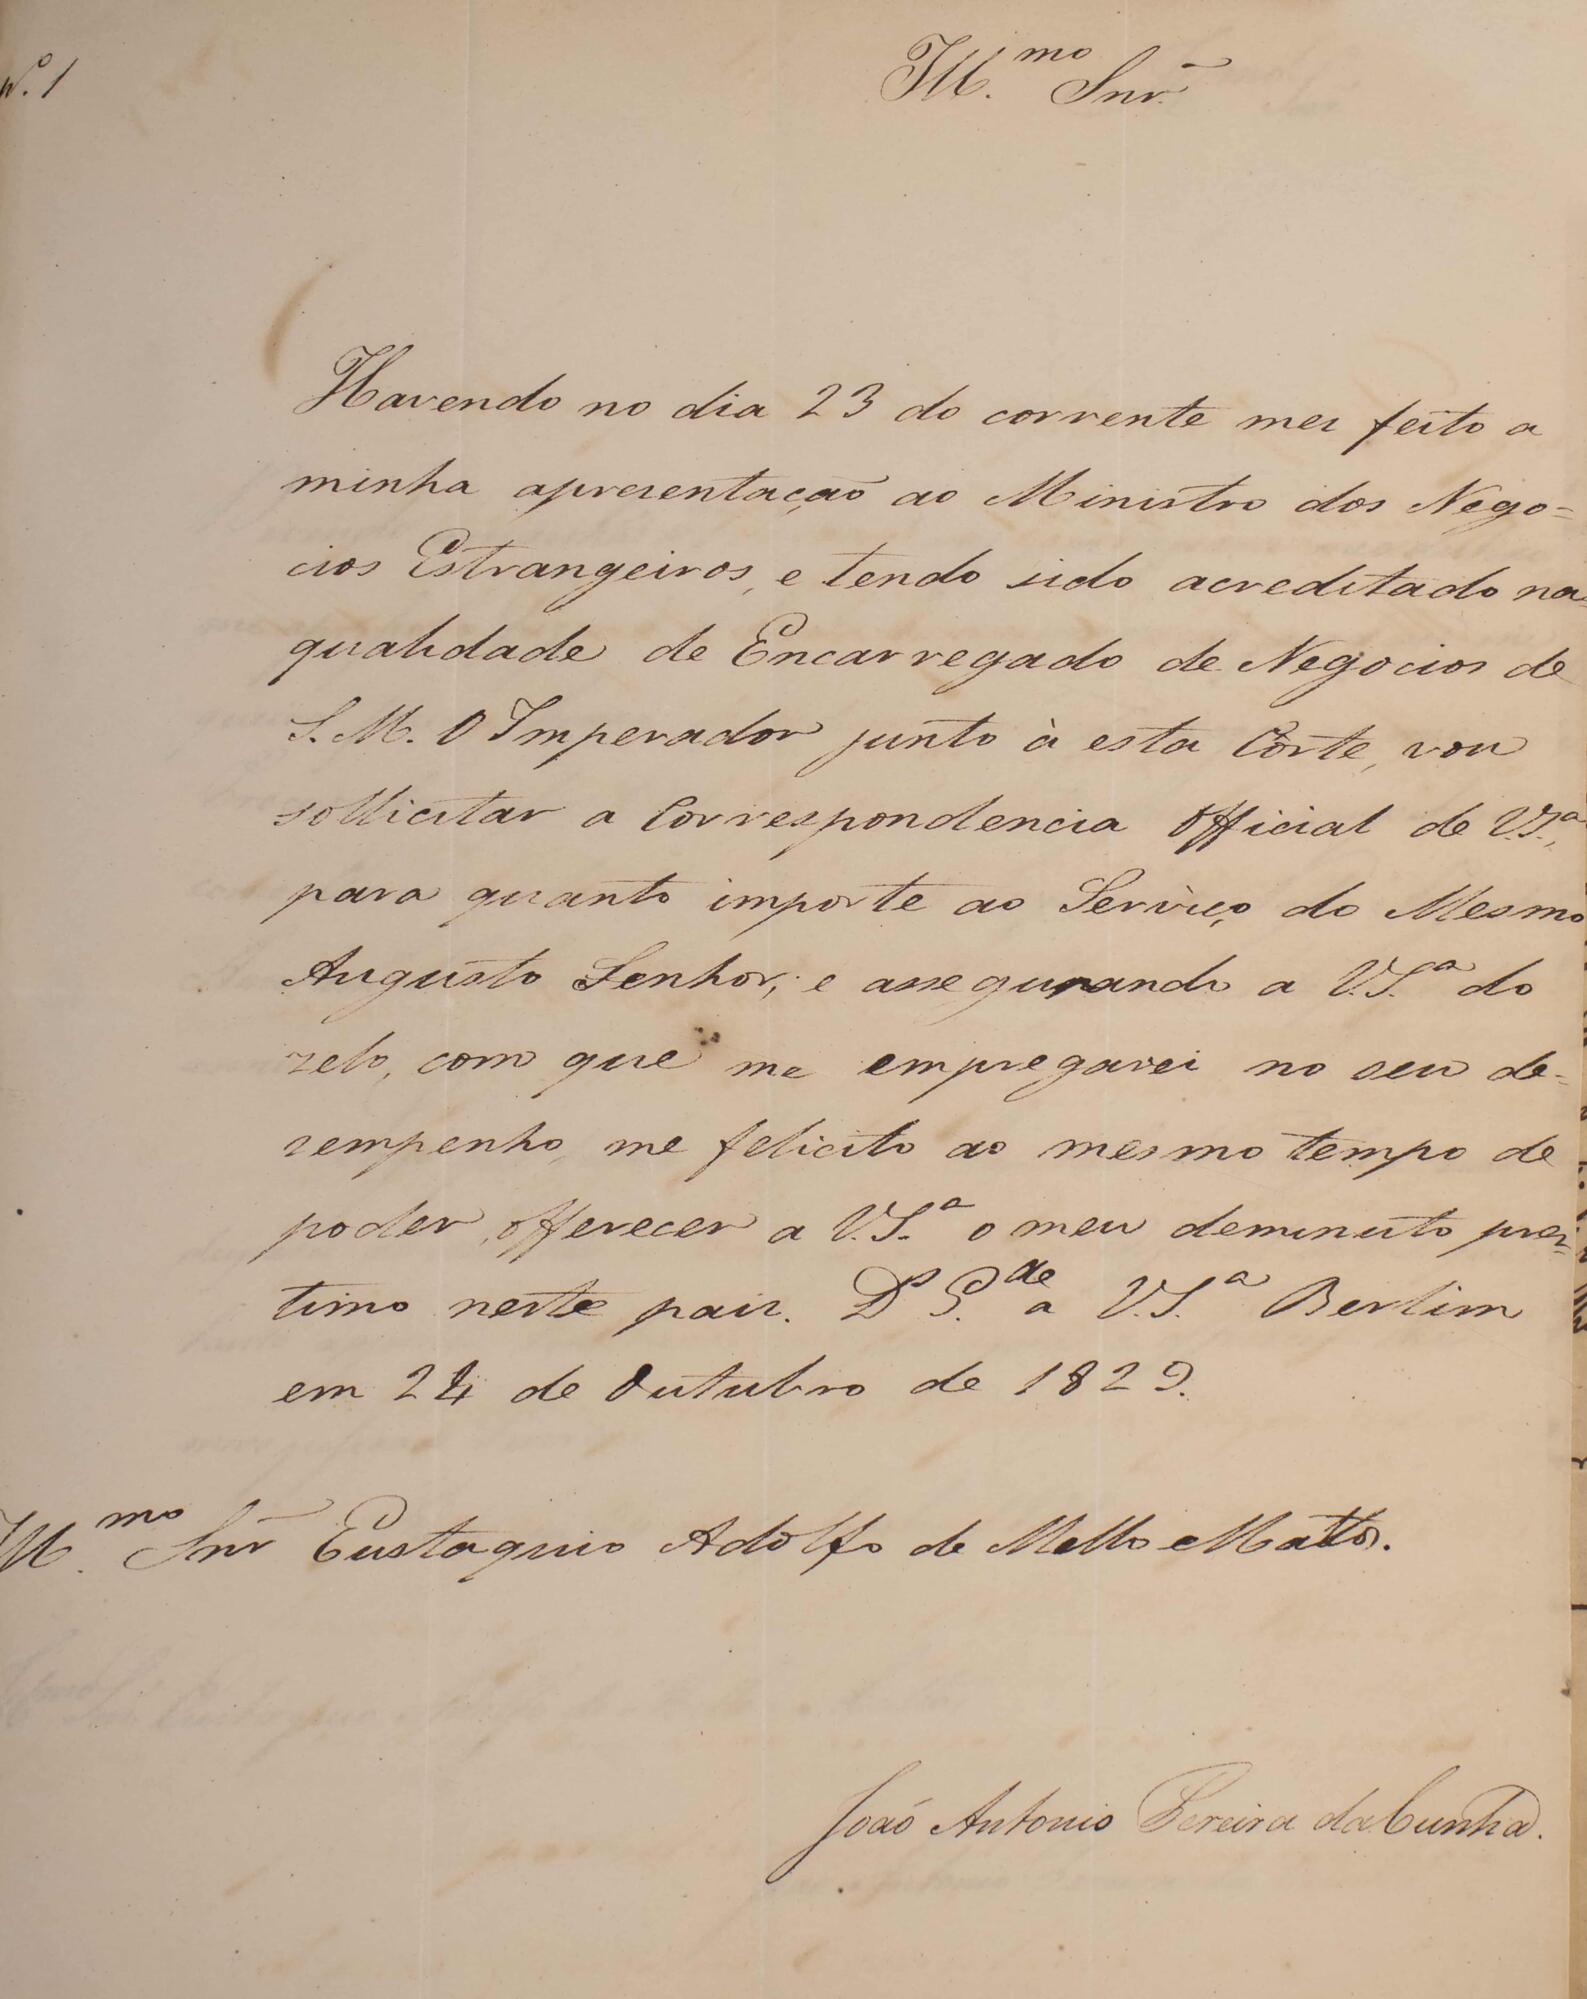 Nº. 1
Ill.mo Snr.
Havendo no dia 23 do corrente mez feito a
minha aprezentação ao Ministro dos Nego=
cios Estrangeiros, e tendo sido acreditado na
qualidade de Encarregado de Negocios de
S. M. O Imperador junto à esta Corte, vou
sollicitar a Correspondencia Official de V.S.ª,
para quanto importe ao Serviço do Mesmo
Augusto Senhor; e assegurando a V.S.ª do
zelo, com que me empregarei no seu de=
zempenho, me felicito ao mesmo tempo de
poder offerecer a V.S.ª o meu deminuto pres=
timo neste paiz. Ds G.de a V.S.ª Berlim
em 24 de Outubro de 1829.
Ill.mo Snr Eustaquio Adolfo de Mello e Mattos.
João Antonio Pereira da Cunha.